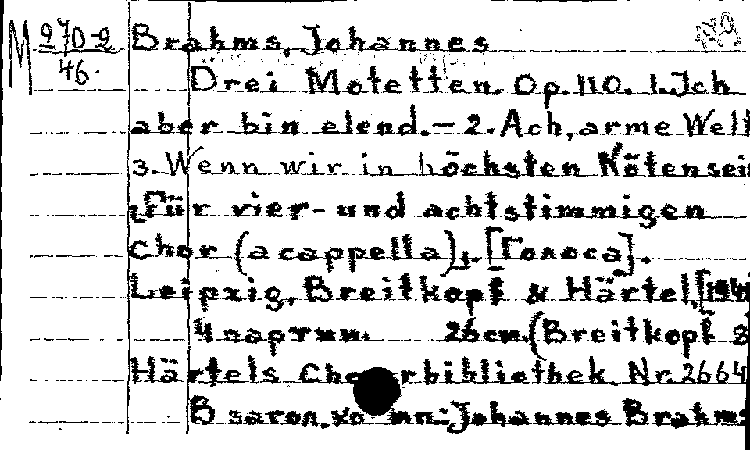 M 970-2 Brahms, Johannes
46. Drei Motetten. Op. 110. 1. Ich
aber bin elend. - 2. Ach, arme Welt
3. Wenn wir in höchsten Nöten sei
Für vier- und achtstimmigen
Chor (a cappella). [Голоса].
Leipzig, Breitkopf & Härtel, [194
4 партии. 26 см. (Breitkopf &
Härtels Chorbibliothek. Nr. 2664
В загол. Johannes Brahms